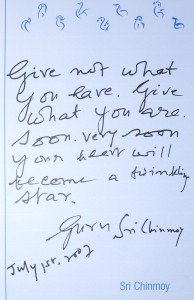 Give not what
you have. Give
what you are.
Soon, very soon
your heart will
become a twinkling
star.
Guru Sri Chinmoy
July 1st, 2007
Sri Chinmoy